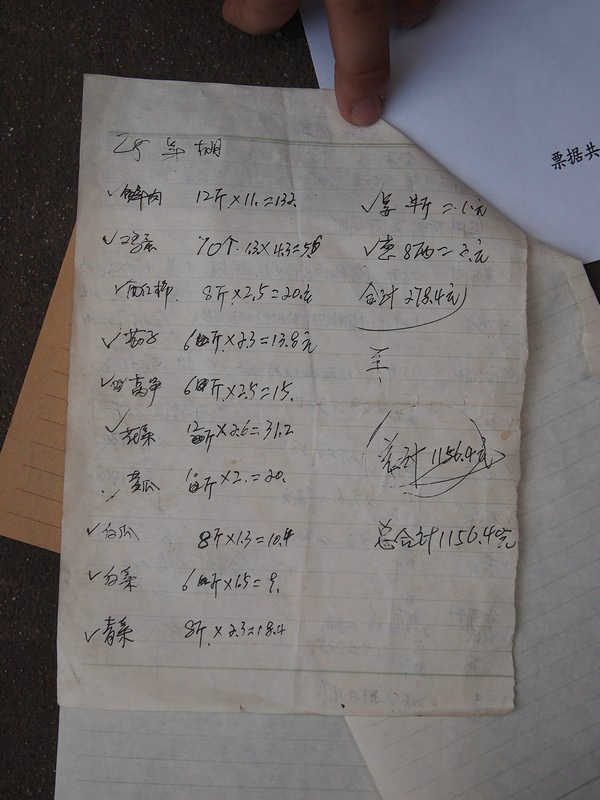 ✓鲜肉 12斤×11.=132.
70个.13×4.3=56
8斤×2.5=20.元
✓茄子 6斤.×2.3=13.8元
6斤.×2.5=15.
✓花菜 12斤×2.6=31.2
✓黄瓜 10斤×2.=20.
✓白瓜 8斤×1.3=10.4
✓白菜 6斤×1.5=9.
✓青菜 8斤.×2.3=18.4
✓姜 半斤=.1.元
✓葱 8两=2.元
合计278.4元
总计1156.4元
总合计1156.40元
票据共